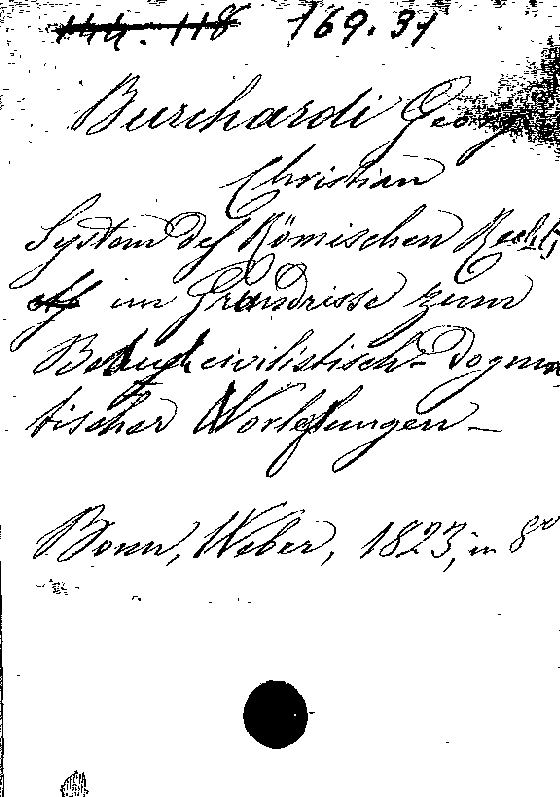 144. 118 169.31
Burchardi Georg
Christian
System des Römischen Rechts
im Grundrisse zum
civilistisch-Dogma
tischer Vorlesungen_
Bonn, Weber, 1823, in 8vo